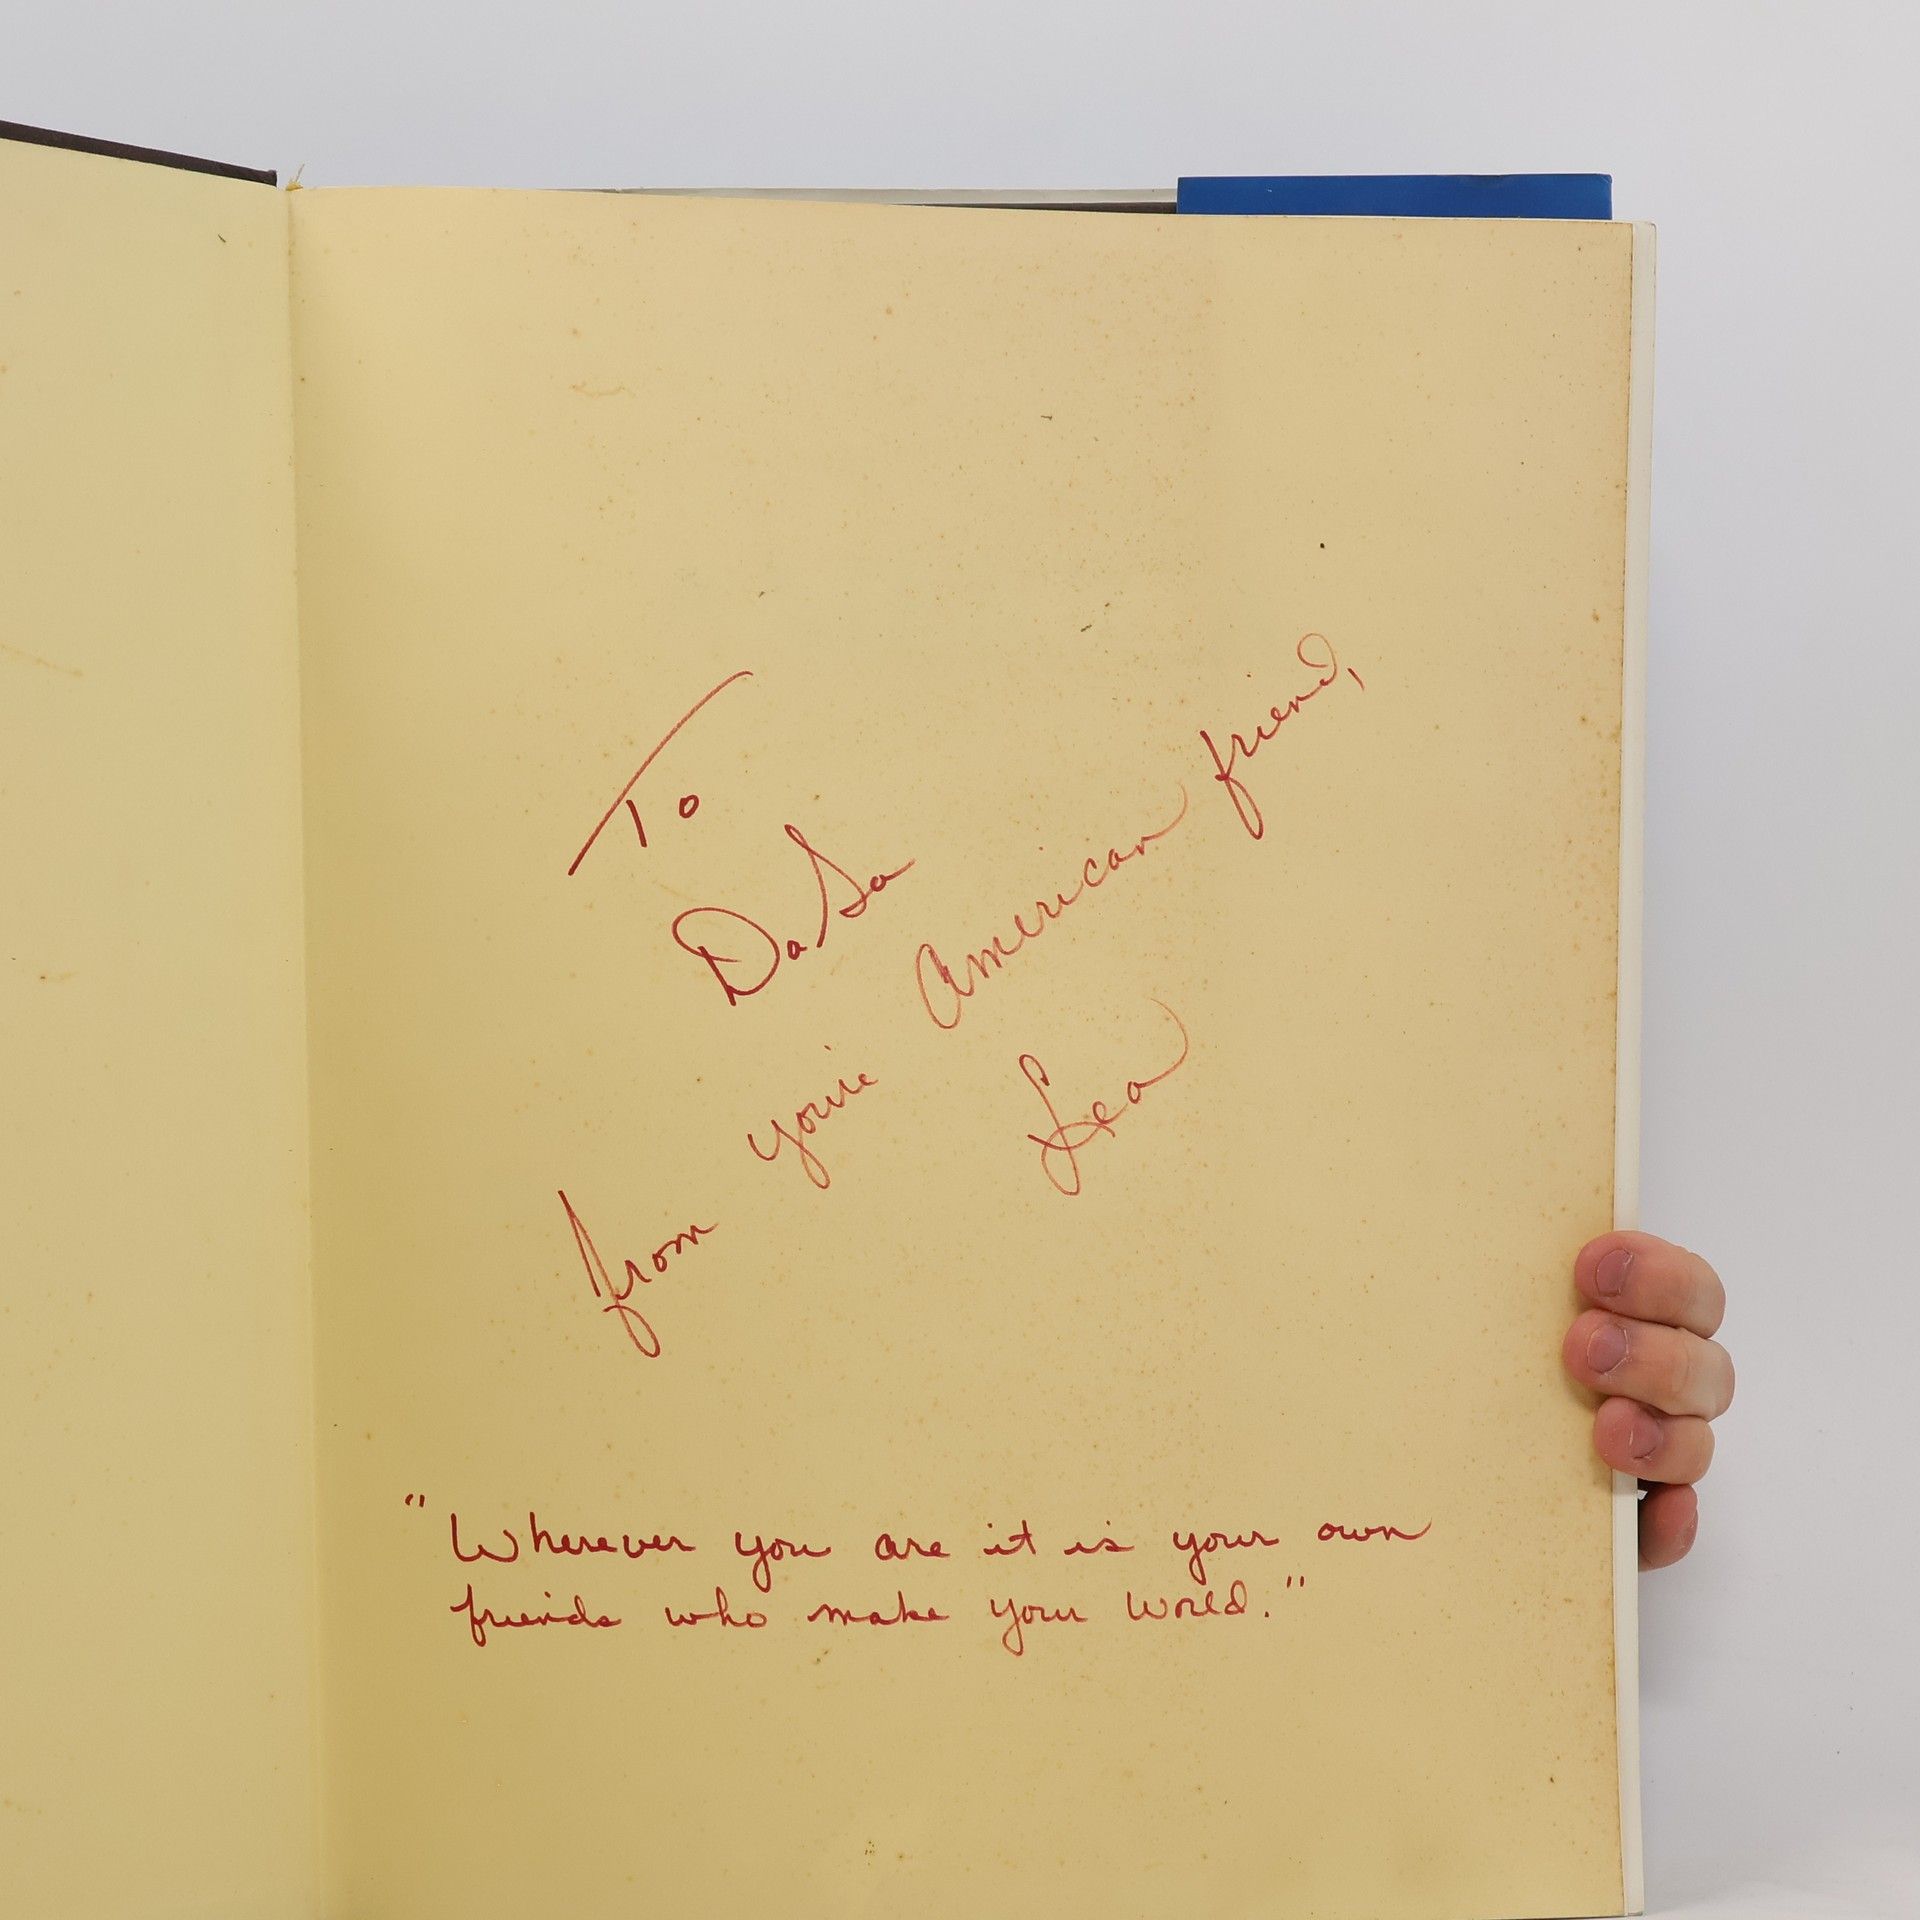 To
DaSa
from you're American friend,
Lea
"Wherever you are it is your own
friends who make your world."